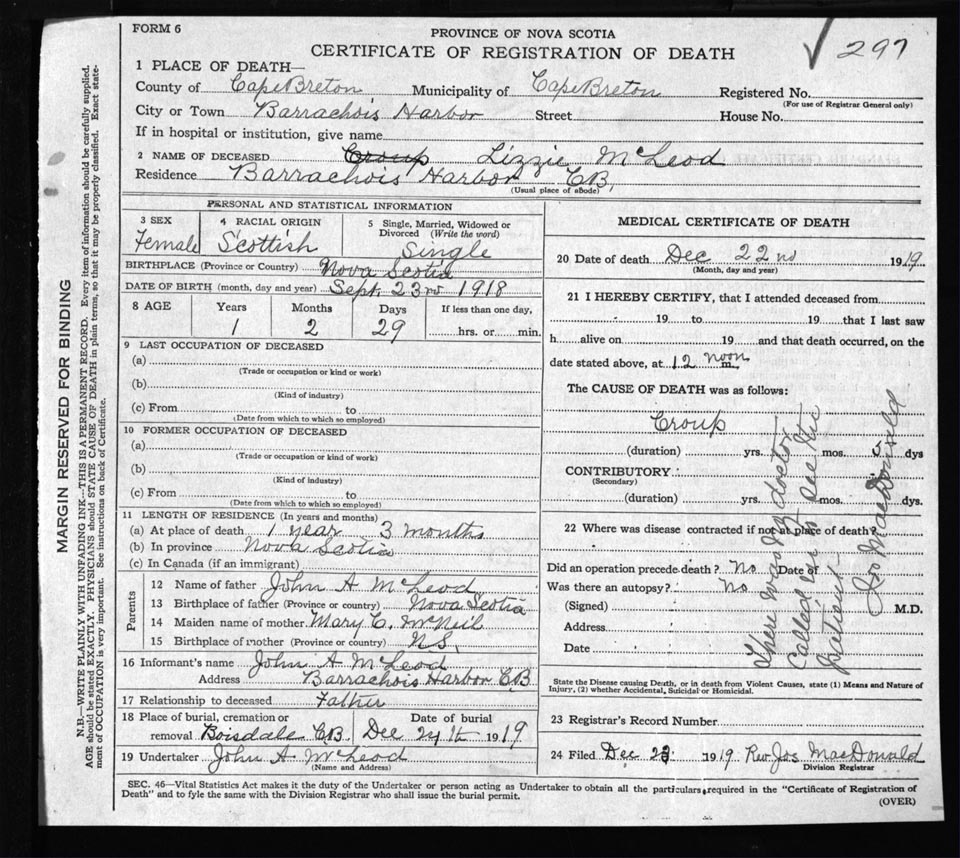 FORM 6
PROVINCE OF NOVA SCOTIA
CERTIFICATE OF REGISTRATION OF DEATH
✓ 297
1 PLACE OF DEATH—
County of Cape Breton Municipality of Cape Breton Registered No.
(For use of Registrar General only)
City or Town Barrachois Harbor Street House No.
If in hospital or institution, give name
2 NAME OF DECEASED Croup Lizzie McLeod
Residence Barrachois Harbor C.B.
(Usual place of abode)
PERSONAL AND STATISTICAL INFORMATION
3 SEX Female
4 RACIAL ORIGIN Scottish
5 Single, Married, Widowed or Divorced (Write the word) Single
BIRTHPLACE (Province or Country) Nova Scotia
DATE OF BIRTH (month, day and year) Sept. 23rd 1918
8 AGE Years Months Days If less than one day,
1 2 29 hrs. or min.
9 LAST OCCUPATION OF DECEASED
(a)
(Trade or occupation or kind or work)
(b)
(Kind of industry)
(c) From to
(Date from which to which so employed)
10 FORMER OCCUPATION OF DECEASED
(a)
(Trade or occupation or kind of work)
(b)
(Kind of industry)
(c) From to
(Date from which to which so employed)
11 LENGTH OF RESIDENCE (In years and months)
(a) At place of death 1 year 3 months
(b) In province Nova Scotia
(c) In Canada (if an immigrant)
Parents
12 Name of father John A McLeod
13 Birthplace of father (Province or country) Nova Scotia
14 Maiden name of mother Mary C. McNeil
15 Birthplace of mother (Province or country) N.S.
16 Informant's name John A McLeod
Address Barrachois Harbor C.B
17 Relationship to deceased Father
18 Place of burial, cremation or removal Boisdale C.B. Date of burial Dec 24th 1919
19 Undertaker John A. McLeod
(Name and Address)
MEDICAL CERTIFICATE OF DEATH
20 Date of death Dec 22nd 1919
(Month, day and year)
21 I HEREBY CERTIFY, that I attended deceased from
19 to 19 that I last saw
h alive on 19 and that death occurred, on the
date stated above, at 12 noon m.
The CAUSE OF DEATH was as follows:
Croup
(duration) yrs. mos. 5 dys
CONTRIBUTORY
(Secondary)
(duration) yrs. mos. dys.
22 Where was disease contracted if not at place of death?
Did an operation precede death? No Date of
Was there an autopsy? No
(Signed) M.D.
Address
Date
There was no doctor
called in to see this
patient
Jos MacDonald
State the Disease causing Death, or in death from Violent Causes, state (1) Means and Nature of
Injury, (2) whether Accidental, Suicidal or Homicidal.
23 Registrar's Record Number
24 Filed Dec 23 1919 Rev Jos MacDonald
Division Registrar
SEC. 46—Vital Statistics Act makes it the duty of the Undertaker or person acting as Undertaker to obtain all the particulars required in the "Certificate of Registration of
Death" and to fyle the same with the Division Registrar who shall issue the burial permit.
(OVER)
MARGIN RESERVED FOR BINDING
N.B.—WRITE PLAINLY WITH UNFADING INK—THIS IS A PERMANENT RECORD. Every item of information should be carefully supplied.
AGE should be stated EXACTLY. PHYSICIANS should STATE CAUSE OF DEATH in plain terms, so that it may be properly classified. Exact statement
of OCCUPATION is very important. See instructions on back of Certificate.